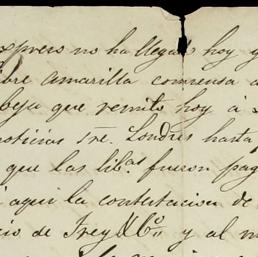 expreso no ha llegado hoy y
bre amarilla comiensa a
que remito hoy a
noticias sre. Londres hasta
que las lib.as fueron pag
aqui la contestacion de
cio de Frey & Co. y al m